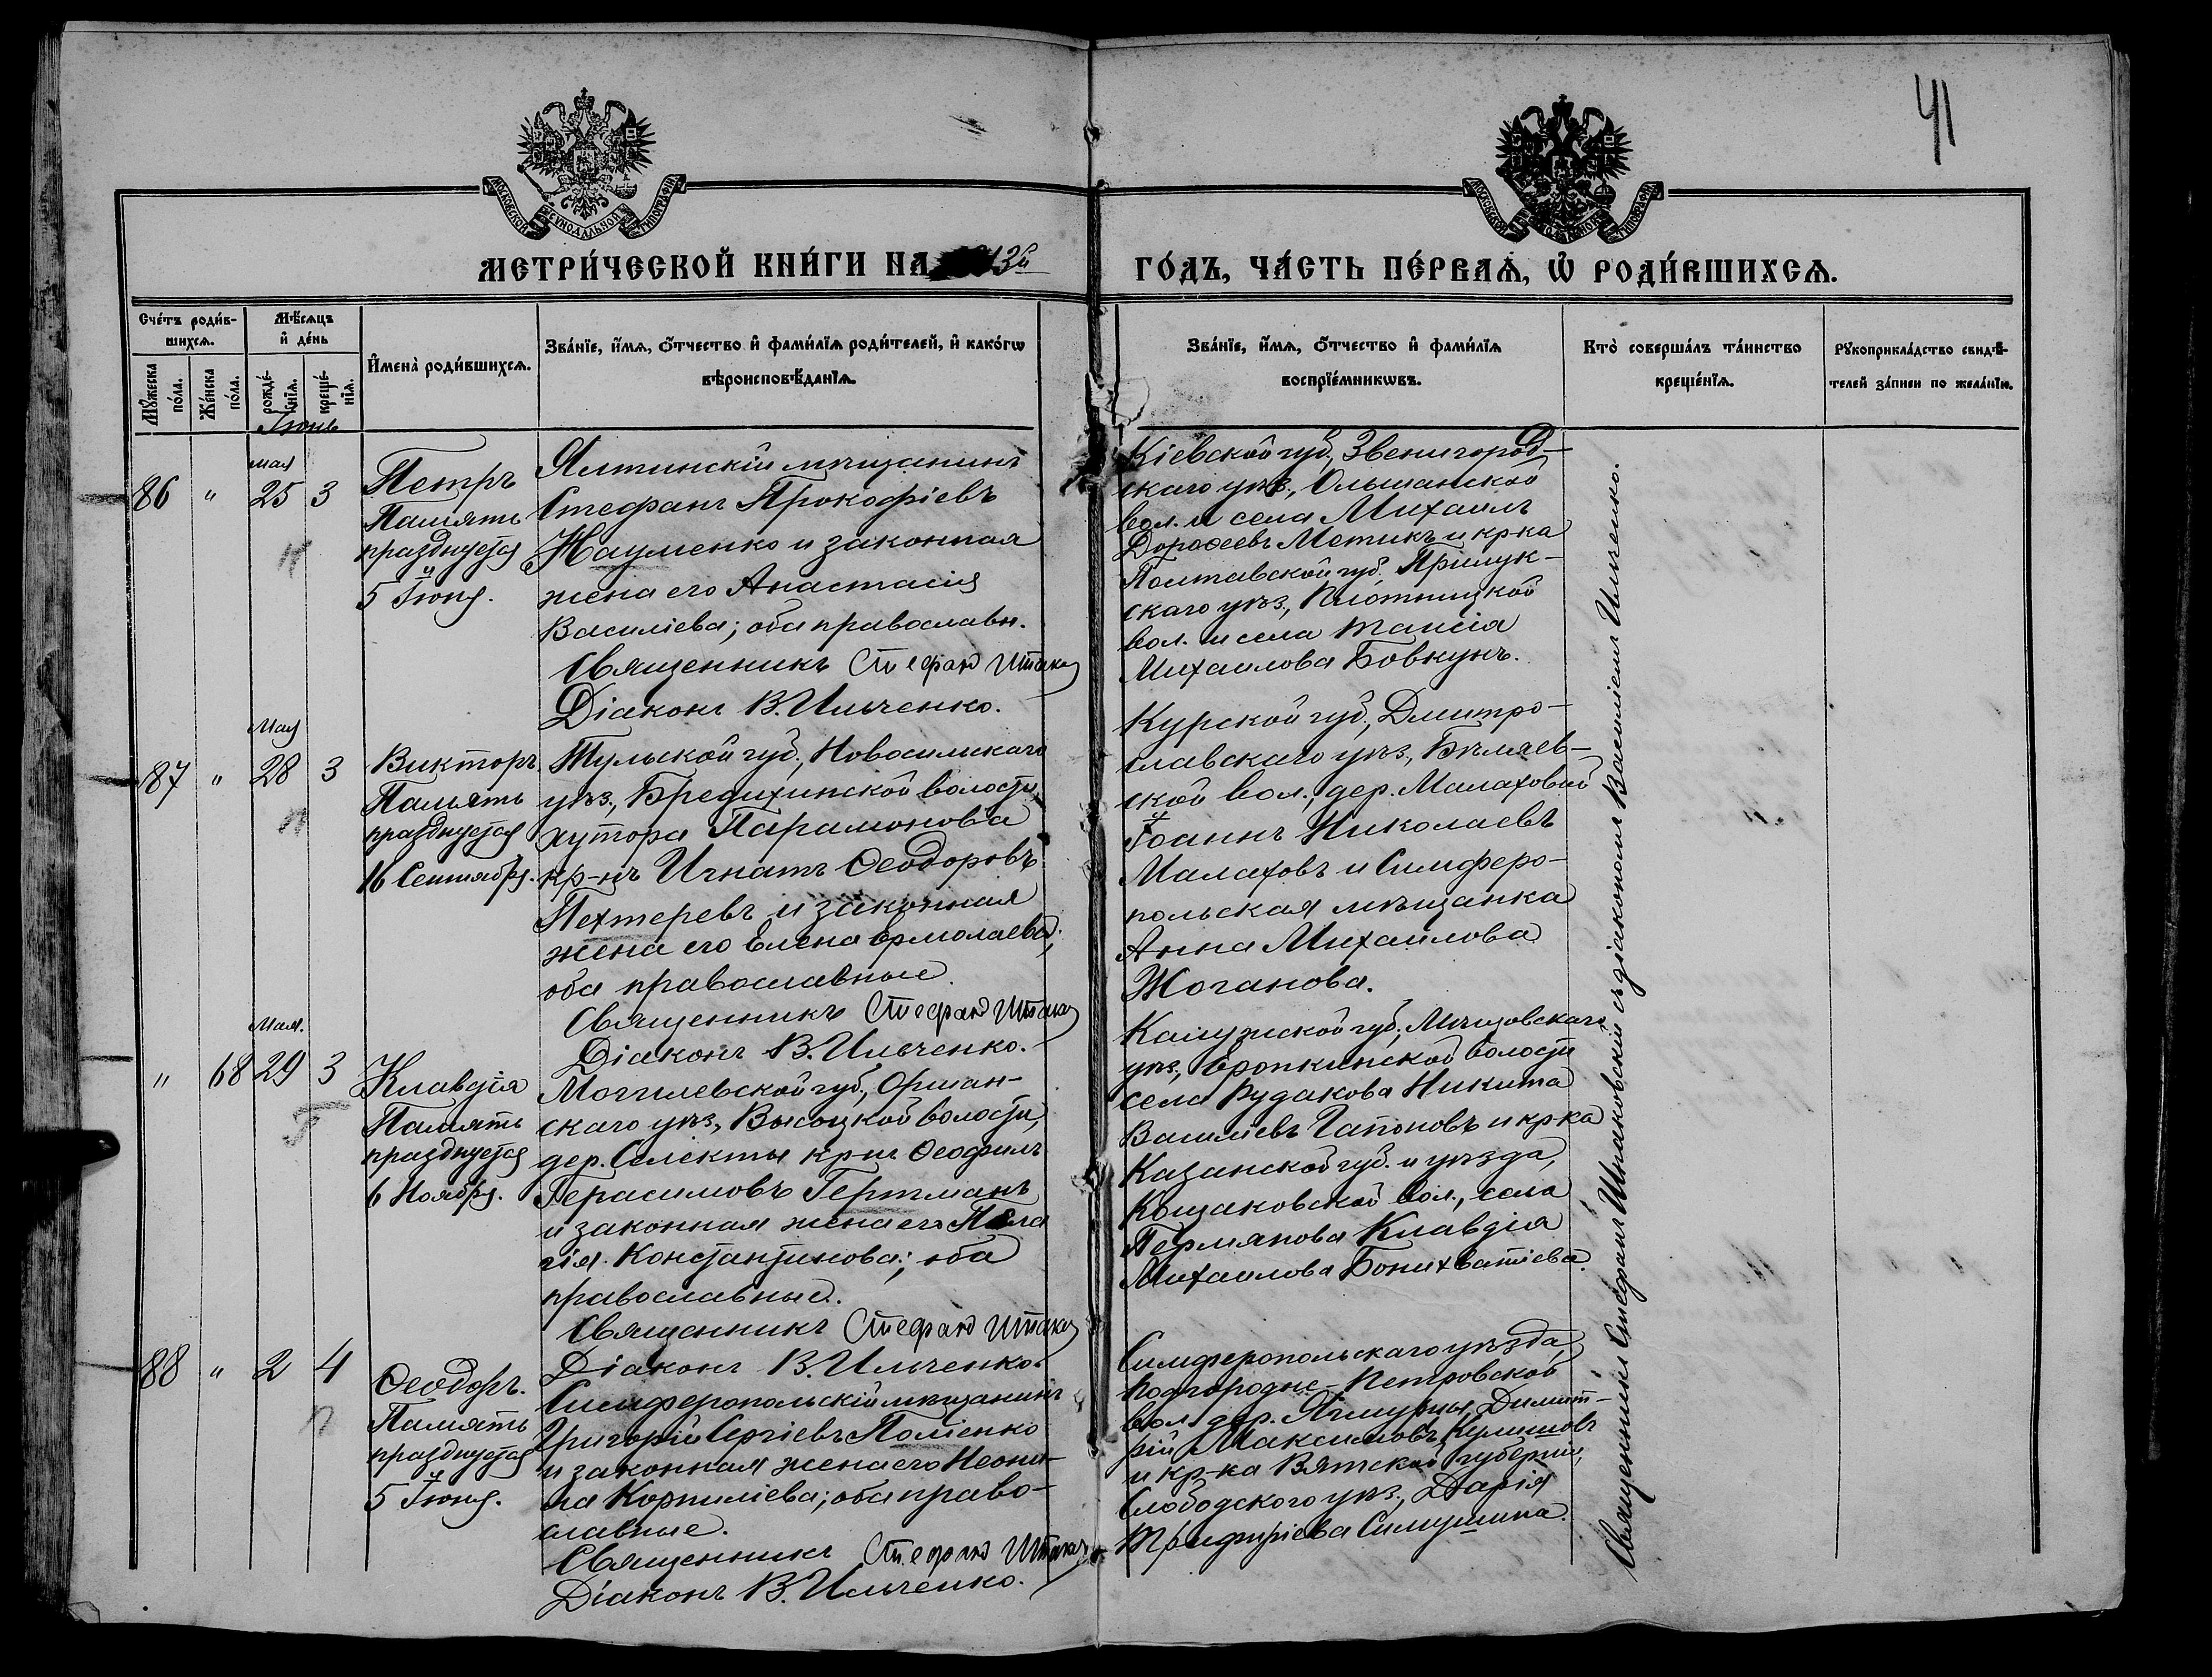 41
МОСКОВСКОЙ СѴНОДАЛЬНОЙ ТИПОГРАФІИ
МОСКОВСКОЙ СѴНОДАЛЬНОЙ ТИПОГРАФІИ
МЕТРИ́ЧЕСКОЙ КНИ́ГИ НА 13й
ГО́ДЪ, ЧА́СТЬ ПЕ́РВАѦ, Ѡ҆ РОДИ́ВШИХСѦ.
Сче́тъ роди́в-
шихсѧ.
Мꙋ́жеска по́ла.
Же́нска по́ла.
Мѣ́сѧцъ
и҆ де́нь
рожде́-
нїѧ.
креще́-
нїѧ.
И҆мена̀ роди́вшихсѧ.
Зва́нїе, и҆́мѧ, ѻ҆́тчество и҆ фами́лїѧ роди́телей, и҆ како́гѡ
вѣроисповѣ́данїѧ.
Зва́нїе, и҆́мѧ, ѻ҆́тчество и҆ фами́лїѧ
воспрїе́мникѡвъ.
Кто̀ соверша́лъ та́инство
креще́нїѧ.
Рꙋкоприкла́дство свидѣ́-
телей за́писи по жела́нїю.
Іюнь
мая
86 " 25 3
Петръ
Память
празднуется
5 Іюня.
Ялтинскій мѣщанинъ
Стефанъ Прокофіевъ
Науменко и законная
жена его Анастасія
Василіева; оба православн.
Священникъ Стефанъ Шпак
Діаконъ В. Ильченко.
Кіевской губ., Звенигород-
скаго уѣз., Ольшанской
вол. и села Михаилъ
Дороѳеевъ Метикъ и кр-ка
Полтавской губ. Прилук-
скаго уѣз.,
вол. и села Таисія
Михаилова Бовкунъ.
Мая
87 " 28 3
Викторъ
Память
празднуется
16 Сентября.
Тульской губ., Новосильскаго
уѣз., Бредихинской волости,
хутора Парамонова
кр-нъ Игнатъ Ѳеодоровъ
Пехтеревъ и законная
жена его Елена Ермолаева;
оба православные.
Священникъ Стефанъ Шпак
Діаконъ В. Ильченко.
Курской губ., Дмитро-
славскаго уѣз., Бѣляев-
ской вол., дер. Малаховой
Іоаннъ Николаевъ
Малаховъ и Симферо-
польская мѣщанка
Анна Михаилова
Жоганова.
Мая.
" 68 29 3
Клавдія
Память
празднуется
6 Ноября.
Могилевской губ., Оршан-
скаго уѣз., Высоцкой волости,
дер. Селекты кр-нъ Ѳеофилъ
Герасимовъ Гертманъ
и законная жена его Пела
гія Константинова; оба
православные.
Священникъ Стефанъ Шпак
Діаконъ В. Ильченко.
Калужской губ., Мещовскаго
уѣз., волости
села Рудакова Никита
Василіевъ Гапоновъ и кр-ка
Казанской губ. и уѣзда,
Кощаковской вол., села
Пермякова Клавдія
Михаилова
88 " 2 4
Ѳеодоръ.
Память
празднуется
5 Іюня.
Симферопольскій мѣщанинъ
Григорій Сергіевъ Поліенко
и законная жена его Неони-
ла Корниліева; оба право-
славные.
Священникъ Стефанъ Шпак
Діаконъ В. Ильченко.
Симферопольскаго уѣзда,
Подгородне-Петровской
вол. дер. Димит-
рій Максимовъ Кулишовъ
и кр-ка Вятской губерніи,
Слободского уѣз., Дарія
Трифиріева Силушина.
Священникъ Стефанъ Шпаковскій съ діакономъ Василіемъ Ильченко.